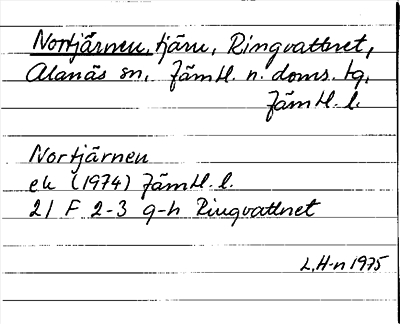 Nortjärnen, tjärn, Ringvattnet,
Alanäs sn, Jämtl. n. doms. tg,
Jämtl. l.
Nortjärnen
ek (1974) Jämtl. l.
21 F 2-3 g-h Ringvattnet
L.H-n 1975